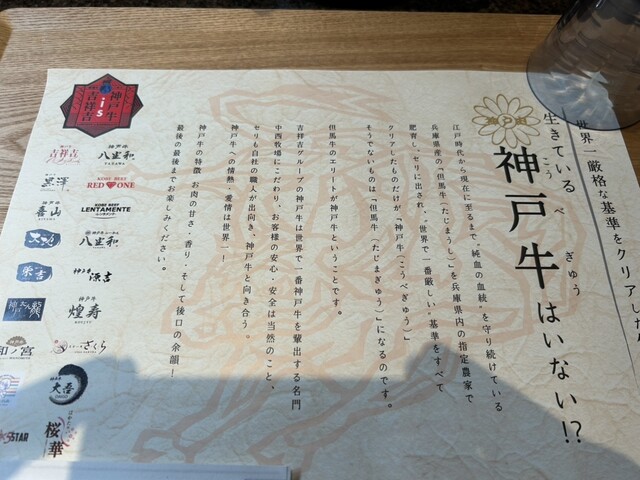 世界一厳格な基準をクリアした
生きている
神戸牛はいない!?
こうべぎゅう
江戸時代から現在に至るまで“純血の血統”を守り続けている
兵庫県産の「但馬牛(たじまうし)」を兵庫県内の指定農家で
肥育し、セリ出され、“世界で一番厳しい”基準をすべて
クリアしたものだけが「神戸牛(こうべぎゅう)」
そうでないものは「但馬牛(たじまぎゅう)」になるのです。
但馬牛のエリートが神戸牛ということです。
吉祥吉グループの神戸牛は世界で一番神戸牛を輩出する名門
中西牧場にこだわり、お客様の安心、安全は当然のこと、
セリも自社の職人が出向き、神戸牛と向き合う。
神戸牛への情熱・愛情は世界一!
神戸牛の特徴、お肉の甘さ・香り、そして後口の余韻!
最後の最後までお楽しみください。
神戸牛
is
吉祥吉
吉祥吉
神戸牛
八坐和
黒澤
KOBE BEEF
RED ONE
喜山
KOBE BEEF
LENTAMENTE
八坐和
栄吉
神戸牛
源吉
神戸牛
煌寿
和ノ宮
さくら
大吾
STAR
桜華